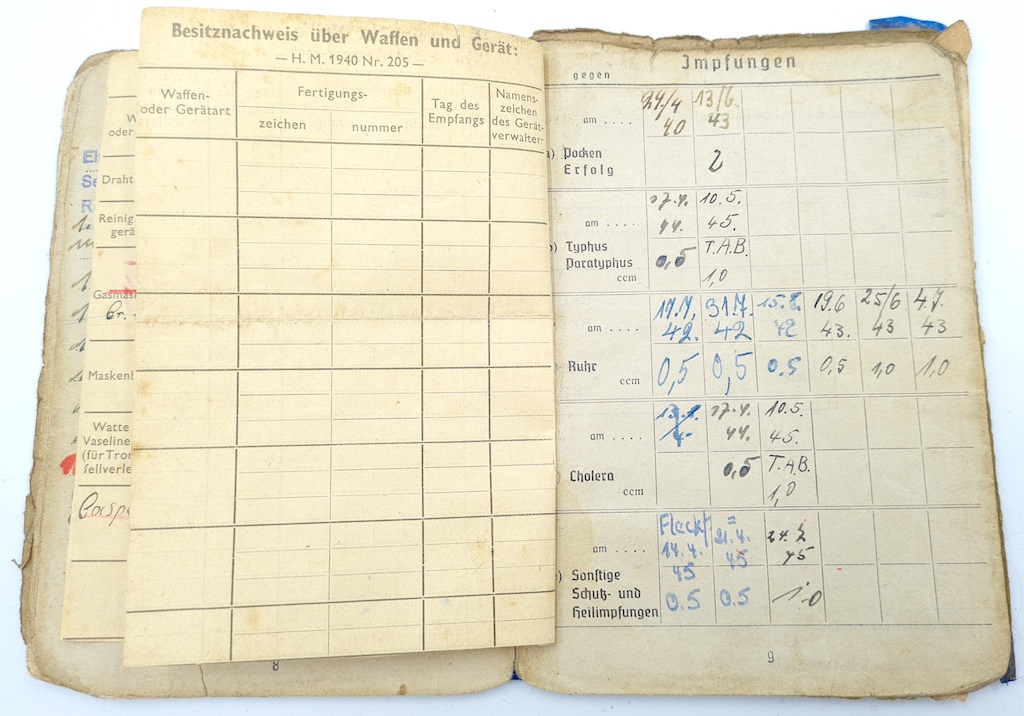 Besitznachweis über Waffen und Gerät:
— H. M. 1940 Nr. 205 —
Waffen-
oder Gerätart
Fertigungs-
zeichen
nummer
Tag des
Empfangs
Namens-
zeichen
des Gerät-
verwalters
oder
Draht
Reinig
gerä
Gasmas
Maskenb
Watte
Vaseline
(für Tro
8
Impfungen
gegen
am . . . . 27/4 13/6.
40 43
a) Pocken
Erfolg 2
17.4. 10.5.
am . . . . 44. 45.
Typhus T.A.B.
Paratyphus 0,5
ccm 1,0
17.7. 31.7. 15.8. 19.6 25/6 4.7.
am . . . . 42. 42 42 43. 43 43
Ruhr 0,5 0,5 0.5 0,5 1,0 1,0
ccm
17.4. 10.5.
am . . . . 44. 45.
Cholera 0,5 T.A.B.
ccm 1,0
Fleckf. =
14.4. 21.4. 24.
am . . . . 45 45 45
Sonstige
Schutz- und 0.5 0.5 1.0
Heilimpfungen
9